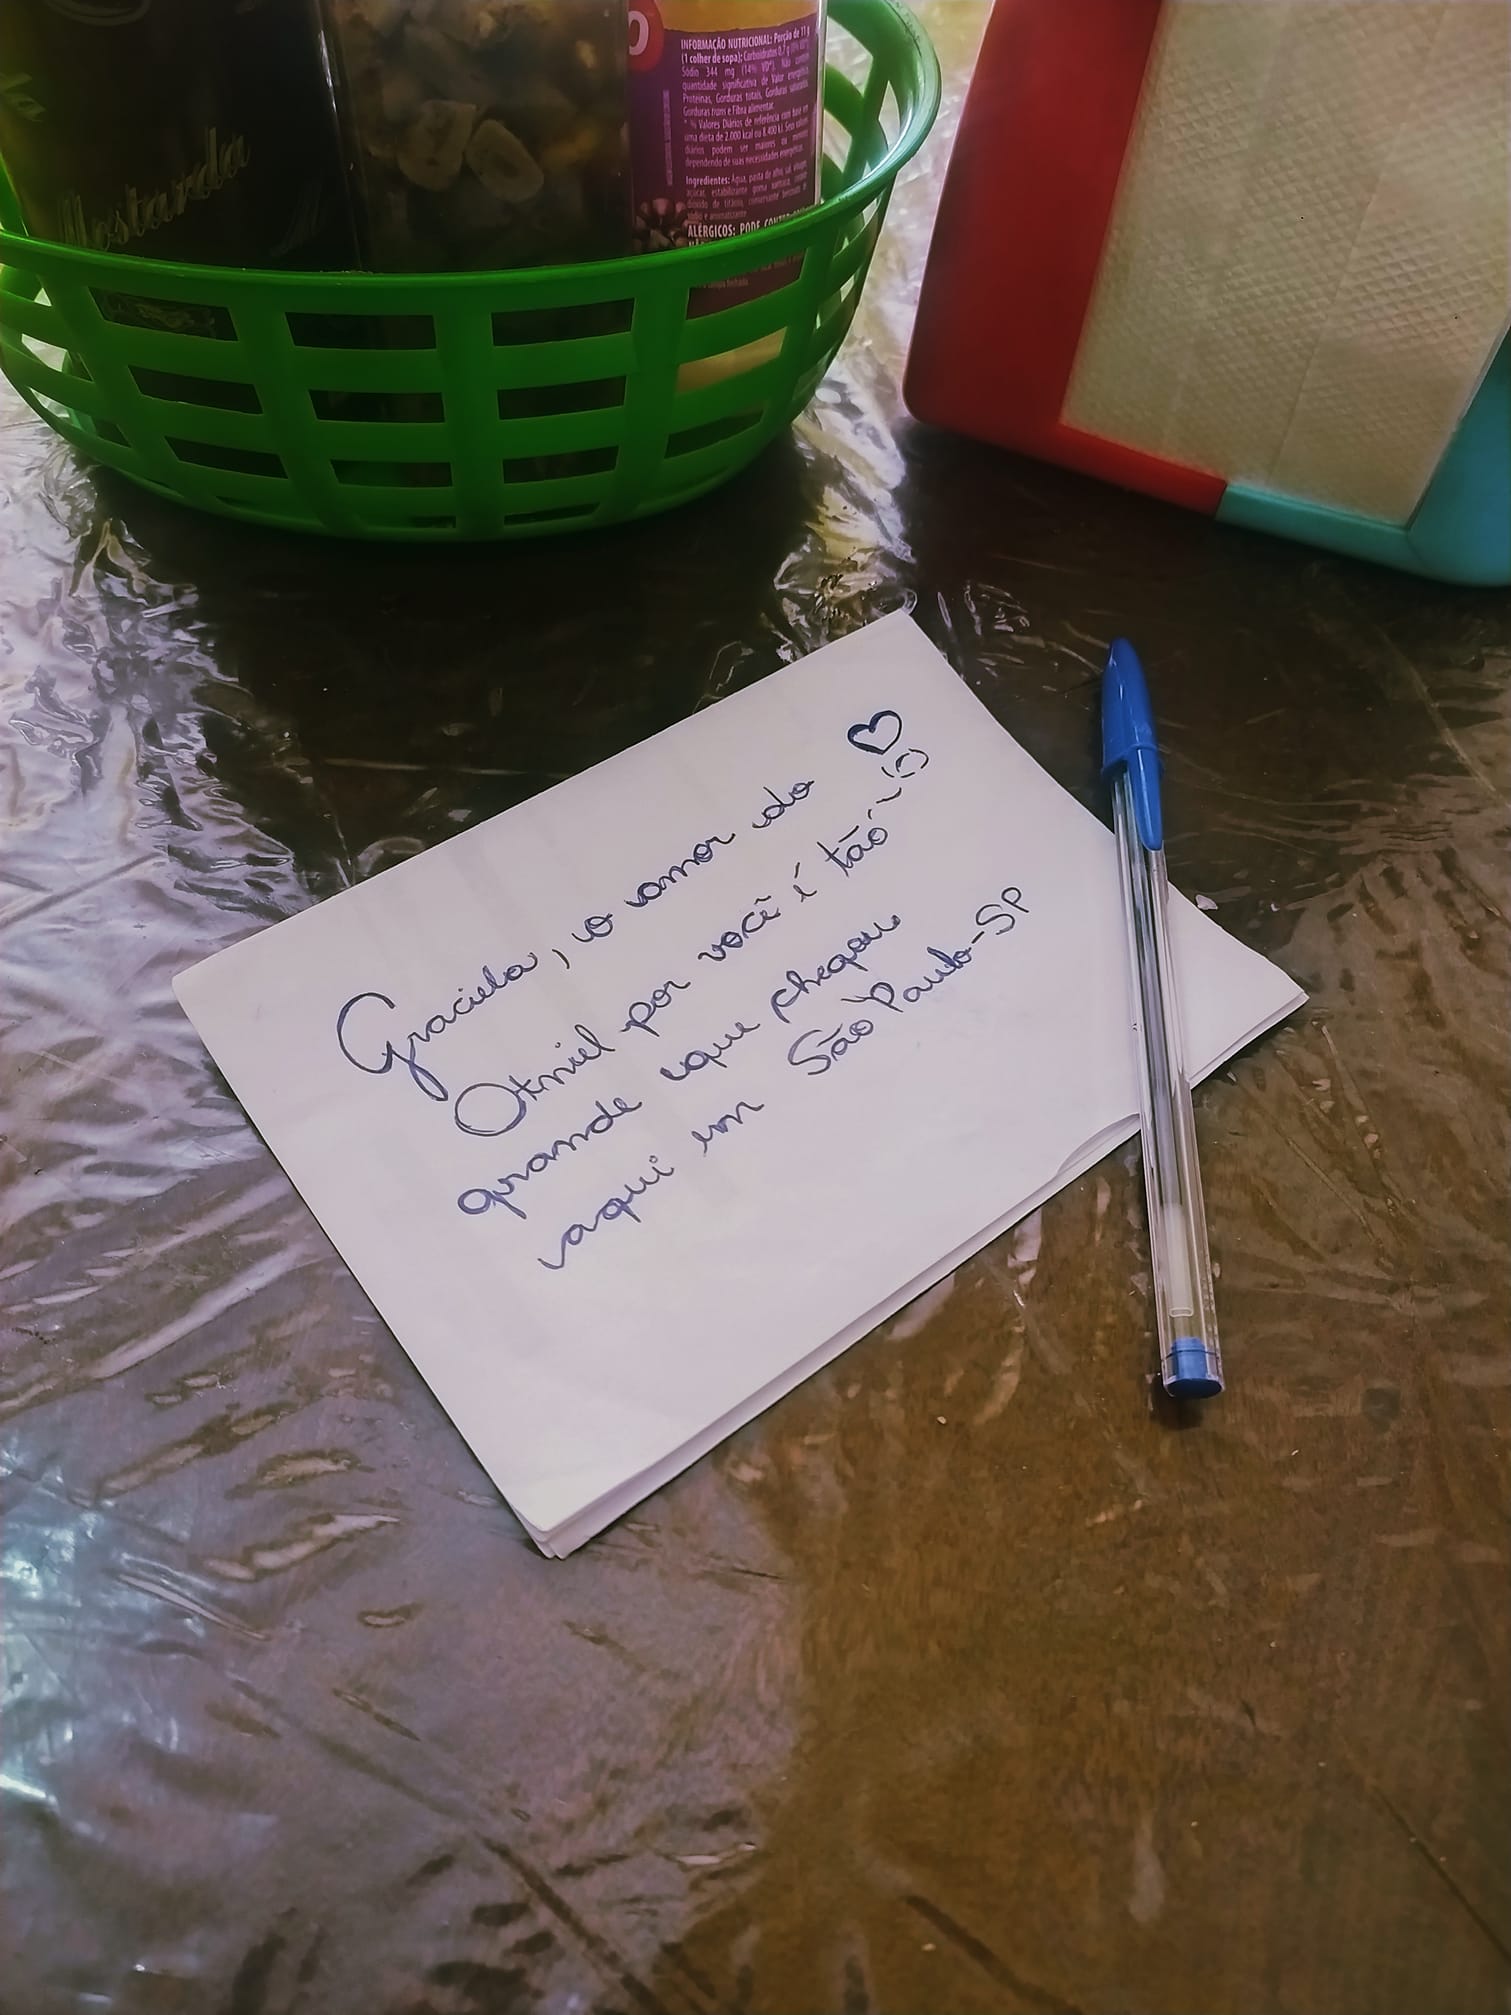 Mostarda
INFORMAÇÃO NUTRICIONAL: Porção de 11 g
(1 colher de sopa); Carboidratos 0,7 g (0% VD*);
Sódio 344 mg (14% VD*). Não contém
quantidade significativa de Valor energético,
Proteínas, Gorduras totais, Gorduras saturadas,
Gorduras trans e Fibra alimentar.
* % Valores Diários de referência com base em
uma dieta de 2.000 kcal ou 8.400 kJ. Seus valores
diários podem ser maiores ou menores
dependendo de suas necessidades energéticas.
Ingredientes: Água, pasta de alho, sal, vinagre,
açúcar, estabilizante goma xantana, corante
dióxido de titânio, conservante
e aromatizante
ALÉRGICOS: PODE CONTER
Graciela, o amor do
Otniel por você é tão
grande que chegou
aqui em São Paulo-SP